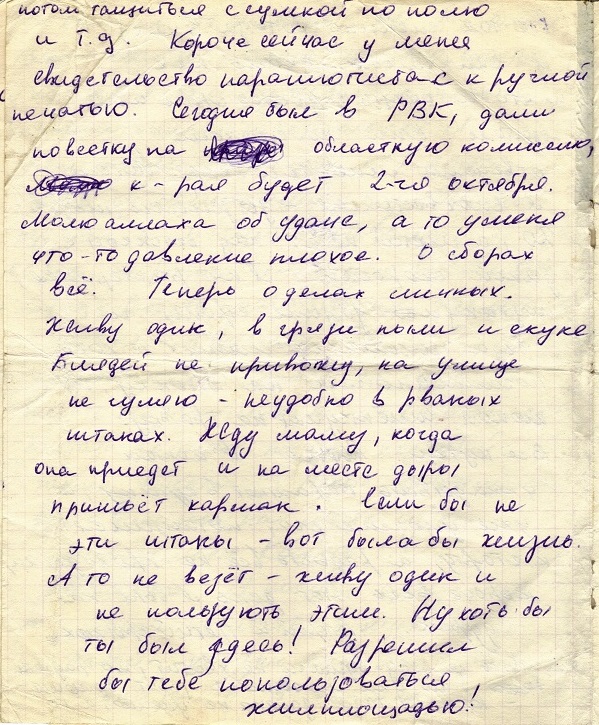 потом тащиться с сумкой по полю
и т.д. Короче сейчас у меня
свидетельство парашютиста с круглой
печатью. Сегодня был в РВК, дали
повестку на областную комиссию,
к-рая будет 2-го октября.
Молю аллаха об удаче, а то у меня
что-то давление плохое. О сборах
всё. Теперь о делах личных.
Живу один, в грязи пыли и скуке
Блядей не привожу, на улице
не гуляю - неудобно в рваных
штанах. Жду маму, когда
она приедет и на месте дыры
пришьёт карман. Если бы не
эти штаны - вот была бы жизнь.
А то не везёт - живу один и
не пользуюсь этим. Ну хоть бы
ты был здесь! Разрешил
бы тебе попользоваться
жилплощадью!